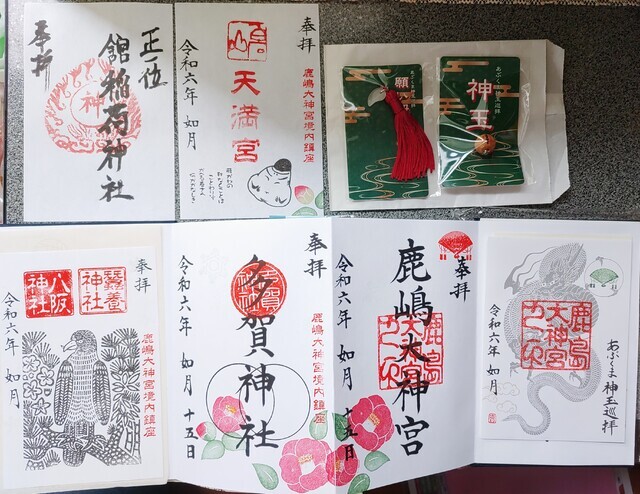 奉拝
正一位
舘稲荷神社
神
奉拝
鹿嶋大神宮境内鎮座
天満宮
令和六年 如月
あぶくま神玉巡拝
願
あぶくま神玉巡拝
神玉
奉拝
蠶養神社
八阪神社
鹿嶋大神宮境内鎮座
令和六年 如月
奉拝
多賀神社
鹿嶋大神宮境内鎮座
令和六年 如月 十五日
奉拝
鹿嶋大神宮
令和六年 如月 十五日
鹿島大神宮
あぶくま神玉巡拝
令和六年 如月